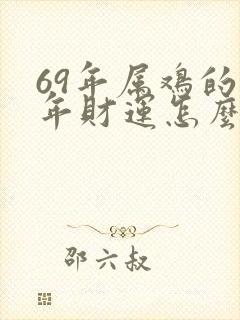 69年属鸡的
年财运怎麽
邵六叔